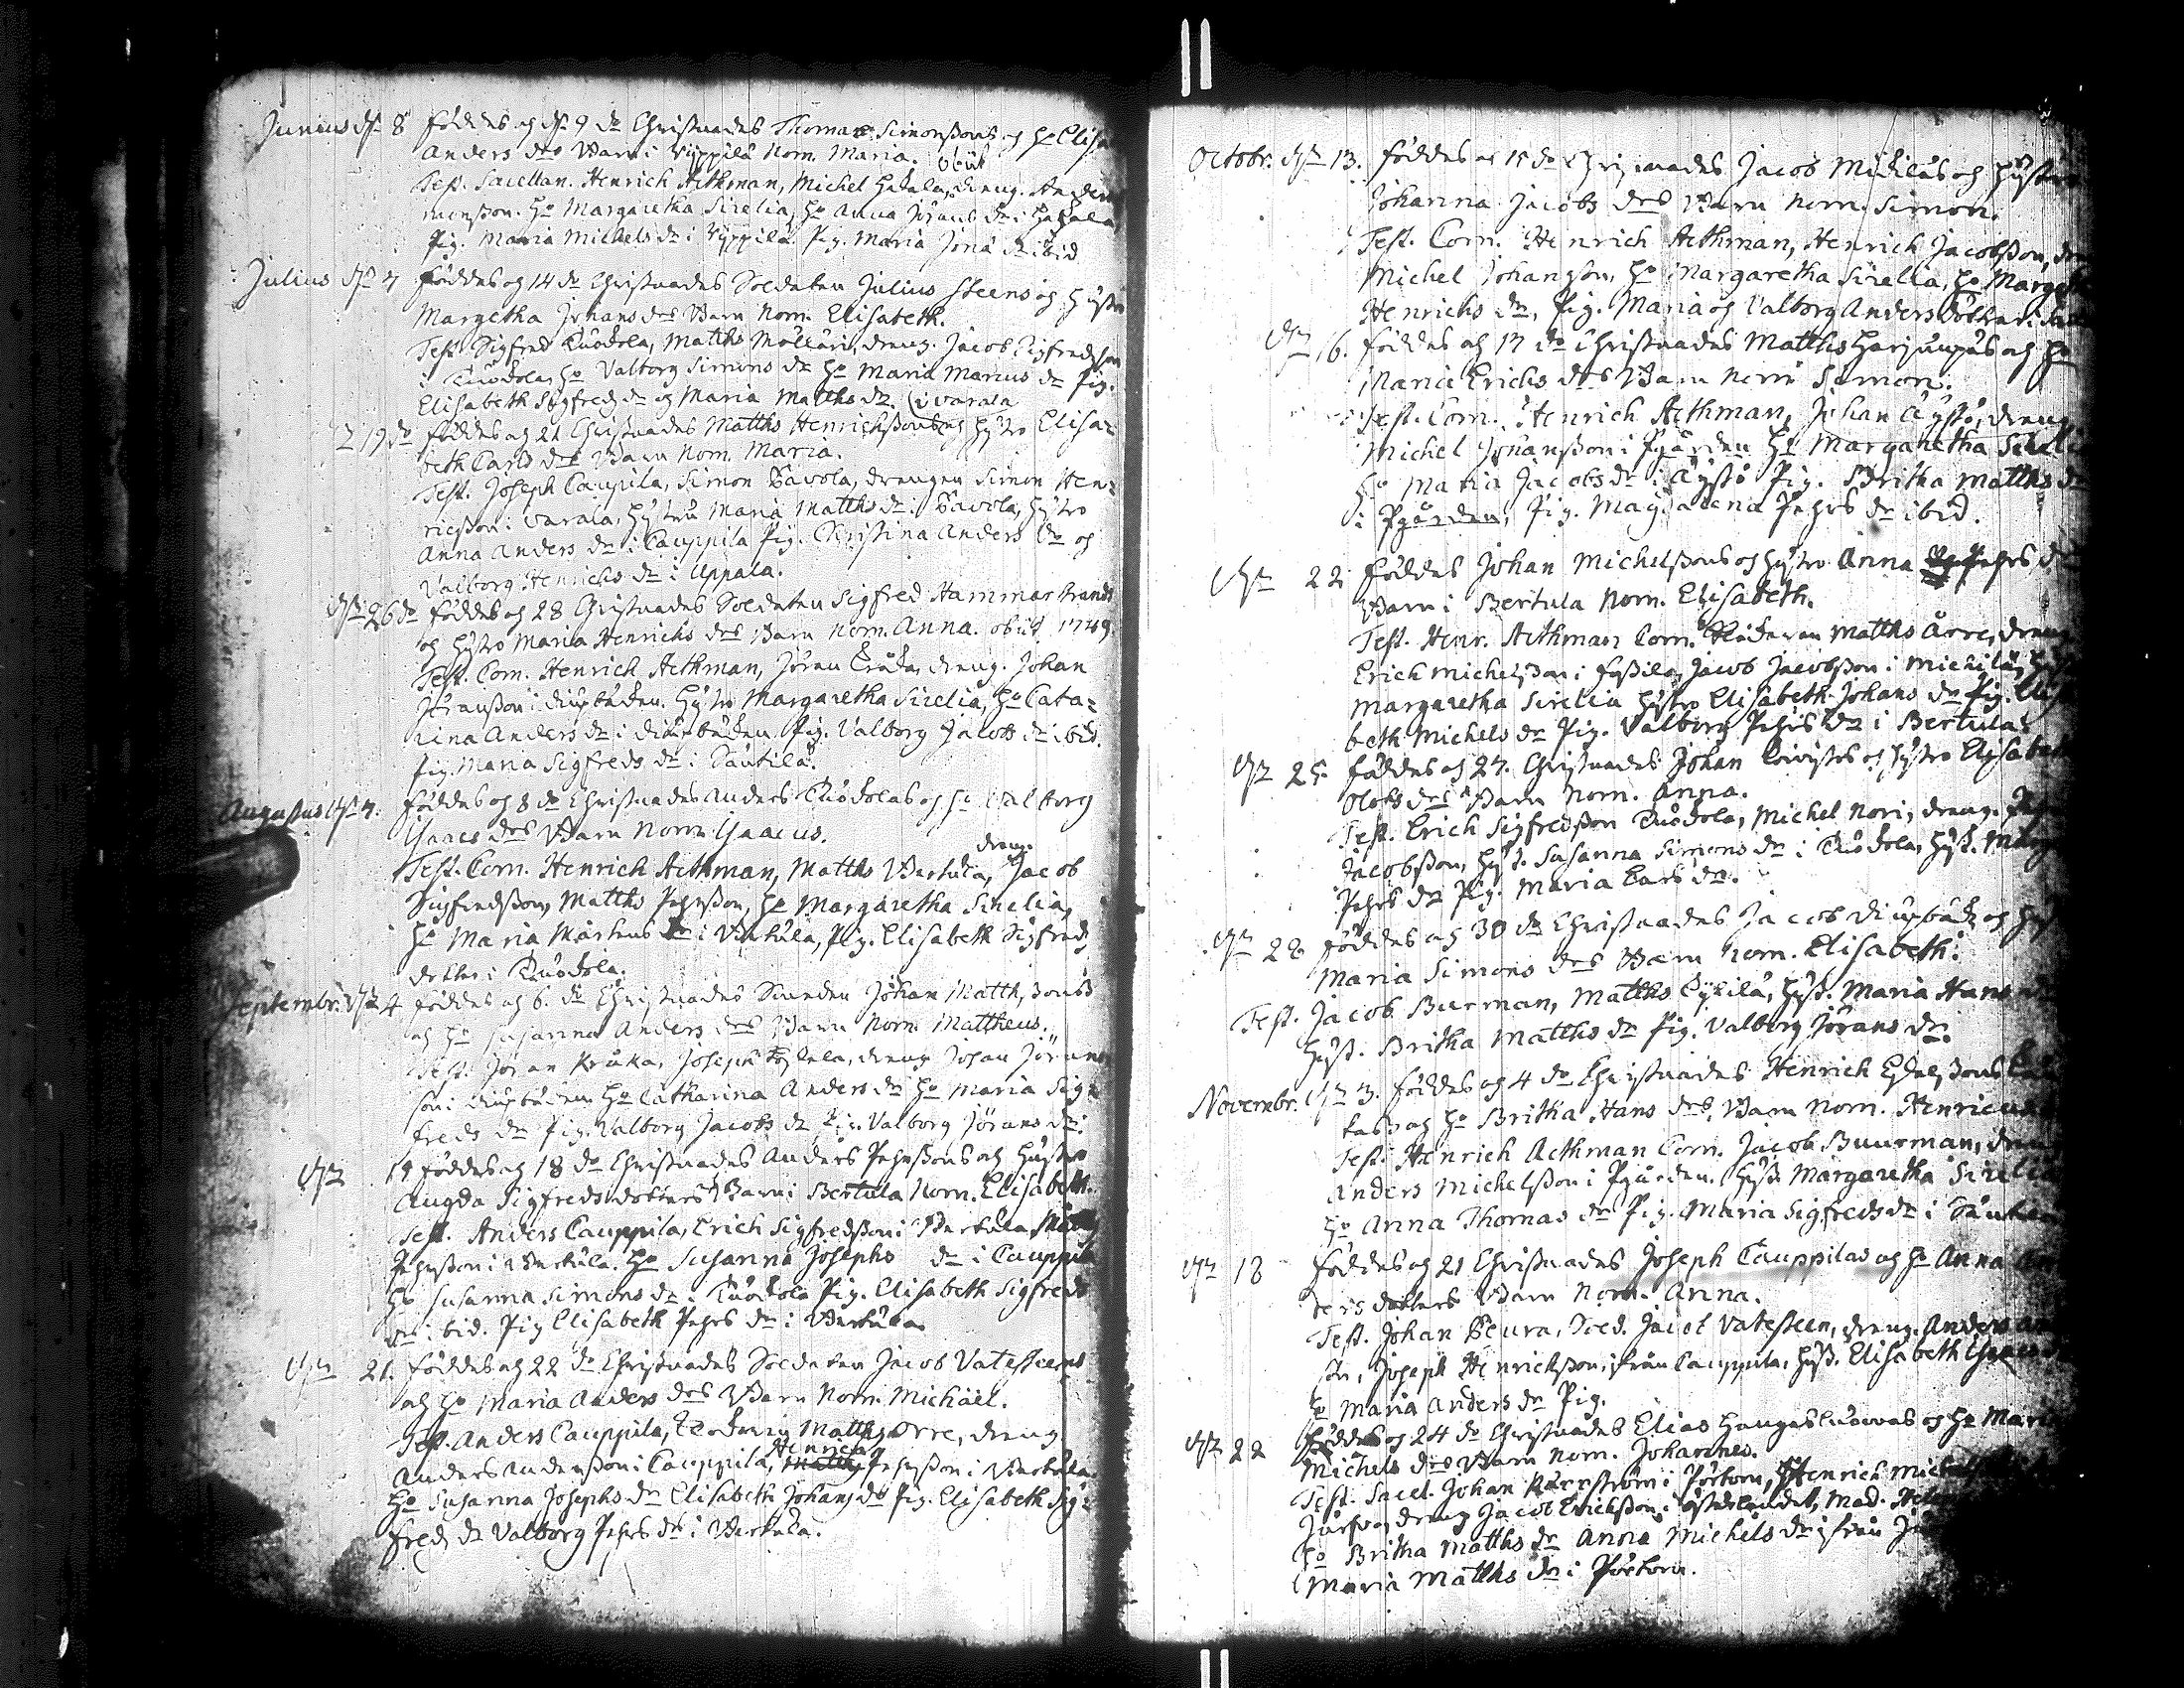 Junius d. 8 föddes och d. 9 do Christnades Thomas Simonssons och ho Elisa
Anders drs Barn i Yÿppilä Nom. Maria. obiit
Test. Sacellan. Henrich Aethman, Michel Hakala, dreng. Anders
monsson. ho Margaretha Sirelia, ho Anna Jörans dr i Hakala
Pig. Maria Michels dr i Yÿppilä. Pig. Maria Jöns dr ibid
Julius d. 7 föddes och 14 do Christnades Soldaten Julius Steens och hustro
Margetha Johans drs Barn Nom. Elisabeth.
Test. Sigfred Tuódola, Matths Mollari, dreng. Jacob Sigfredsson
i Tuódola, ho Valborg Simons dr ho Maria Marcus dr Pig.
Elisabeth Sigfreds dr och Maria Matths dr. (i Varala
19 do föddes och 21 Christnades Matths Henrichssons och hustro Elisa=
beth Carls drs Barn Nom. Maria.
Test. Joseph Caupila, Simon Pavola, drengen Simon Hen=
ricsson i Varala, hustru Maria Matths dr i Pavola, hustro
Anna Anders dr i Cauppila Pig. Christina Anders dr och
Valborg Henrichs dr i Uppala.
d. 26 do föddes och 28 Christnades Soldaten Sigfred Hammarstrands
och hustro Maria Henrichs drs Barn Nom. Anna. obiit 1749.
Test. Com. Henrich Aethman, Jöran Kråka, dreng. Johan
Jöransson i diupbäcken. hustro Margaretha Sirelia, ho Cata=
rina Anders dr i diupbäcken Pig. Valborg Jacobs dr ibid.
Pig. Maria Sigfreds dr i Säntilä.
Augustus d. 7. föddes och 8 do Christnades Anders Tuódolas och ho Valborg
Isaacs drs Barn Nom Isaacus.
dreng.
Test. Com. Henrich Aethman, Matths Bertula, Jacob
Sigfredsson, Matths Pehrsson, ho Margaretha Sirelia,
ho Maria Markus dr i Bertula, Pig. Elisabeth Sigfreds
dotter i Tuódola.
Septembr. d. 4 föddes och 6. do Christnades Johan Matthssons
och ho Susanna Anders drs Barn Nom. Mattheus.
Test. Jöran Kråka, Joseph, dreng Johan Jörans
son i diupbäcken ho Catharina Anders dr ho Maria Sig=
freds dr Pig. Valborg Jacobs dr Pig. Valborg Jörans dr
d. 17 föddes och 18 do Christnades Anders Pehrssons och hustro
Augda Sigfreds dotters Barn i Bertula Nom. Elisabeth.
Test. Anders Cauppila, Erich Sigfredsson i Bertula
Pehrsson i Bertula. ho Susanna Josephs dr i Cauppila
ho Susanna Simons dr. Tuódola Pig. Elisabeth Sigfreds
dr ibid. Pig Elisabeth Pehrs dr i Bertula
d. 21. föddes och 22 do Christnades Soldaten Jacob Vatesteens
och ho Maria Anders drs Barn Nom. Michaël.
Test. Anders Cauppila, Matths Orre, dreng
Henrich
Anders Andersson i Cauppila, Matths Pehrsson i Bertula
ho Susanna Josephs dr Elisabeth Johans dr Pig. Elisabeth Sig=
freds dr Valborg Pehrs dr i Bertula.
Octobr. d. 13. föddes och 15 do Christnades Jacob Mickilas och hustro
Johanna Jacobs drs Barn Nom. Simon.
Test. Com. Henrich Aethman, Henrich Jacobsson, dr
Michel Johansson, ho Margaretha Sirelia, ho Marget
Henrichs dr, Pig. Maria och Valborg Anders döttrar i
d. 16. föddes och 17 do Christnades Matths Harjunpäs och ho
Maria Erichs drs Barn Nom Simon.
Test. Com. Henrich Aethman, Johan Äÿstö, dreng
Michel Johansson i Pgården ho Margaretha Sirelia
ho Maria Jacobs dr i Äÿstö Pig. Britha Matths dr
i Pgården, Pig. Magdalena Pehrs dr ibid.
d. 22 föddes Johan Michelssons och hustro Anna Pehrs d
Barn i Bertula Nom. Elisabeth.
Test. Henr. Aethman Com. Matths Årre, dreng
Erich Michelsson i Jossila, Jacob Jacobsson i Michilä,
Margaretha Sirelia hustro Elisabeth Johans dr Pig. Elisa
beth Michels dr Pig. Valborg Pehrs dr i Bertula
d. 25. föddes och 27. Christnades Johan Coivistos och hustro Elisabeth
Olofs drs Barn Nom. Anna.
Test. Erich Sigfredsson Tuódola, Michel Nori, dreng.
Jacobsson, hust. Susanna Simons dr i Tuódola, hust. Marg
Pehrs dr Pig. Maria Carls dr.
d. 28 föddes och 30 do Christnades Jacob Diupbäck och hust
Maria Simons drs Barn Nom. Elisabeth.
Test. Jacob Buurman, Matths Cÿkilä, hust. Maria Hans
hust. Britha Matths dr Pig. Valborg Jörans dr
Novembr. d. 3. föddes och 4 do Christnades Henrich
och ho Britha Hans drs Barn Nom. Henricus
Test. Henrich Aethman Com. Jacob Buurman, dreng
Anders Michelsson i Pgården. hust Margaretha Sirelia
ho Anna Thomas dr Pig. Maria Sigfreds dr i
d. 18 föddes och 21 Christnades Joseph Cauppilas och ho Anna An
ders dotters Barn Nom. Anna.
Test. Johan Peura, Sold. Jacob Vatesteen, dreng. Anders
Joseph Henrichsson, från Cauppila, hust. Elisabeth Isaacs
ho Maria Anders dr Pig.
d. 22 föddes och 24 do Christnades Elias Hangasluomas och ho Maria
Michels drs Barn Nom. Johannes.
Test. Sacel. Johan i Pörtom, Henrich Michels
dreng Jacob Erichsson i Österlandet, Mad.
ho Britha Matths dr Anna Michels dr från
Maria Matths dr i Pörtom.